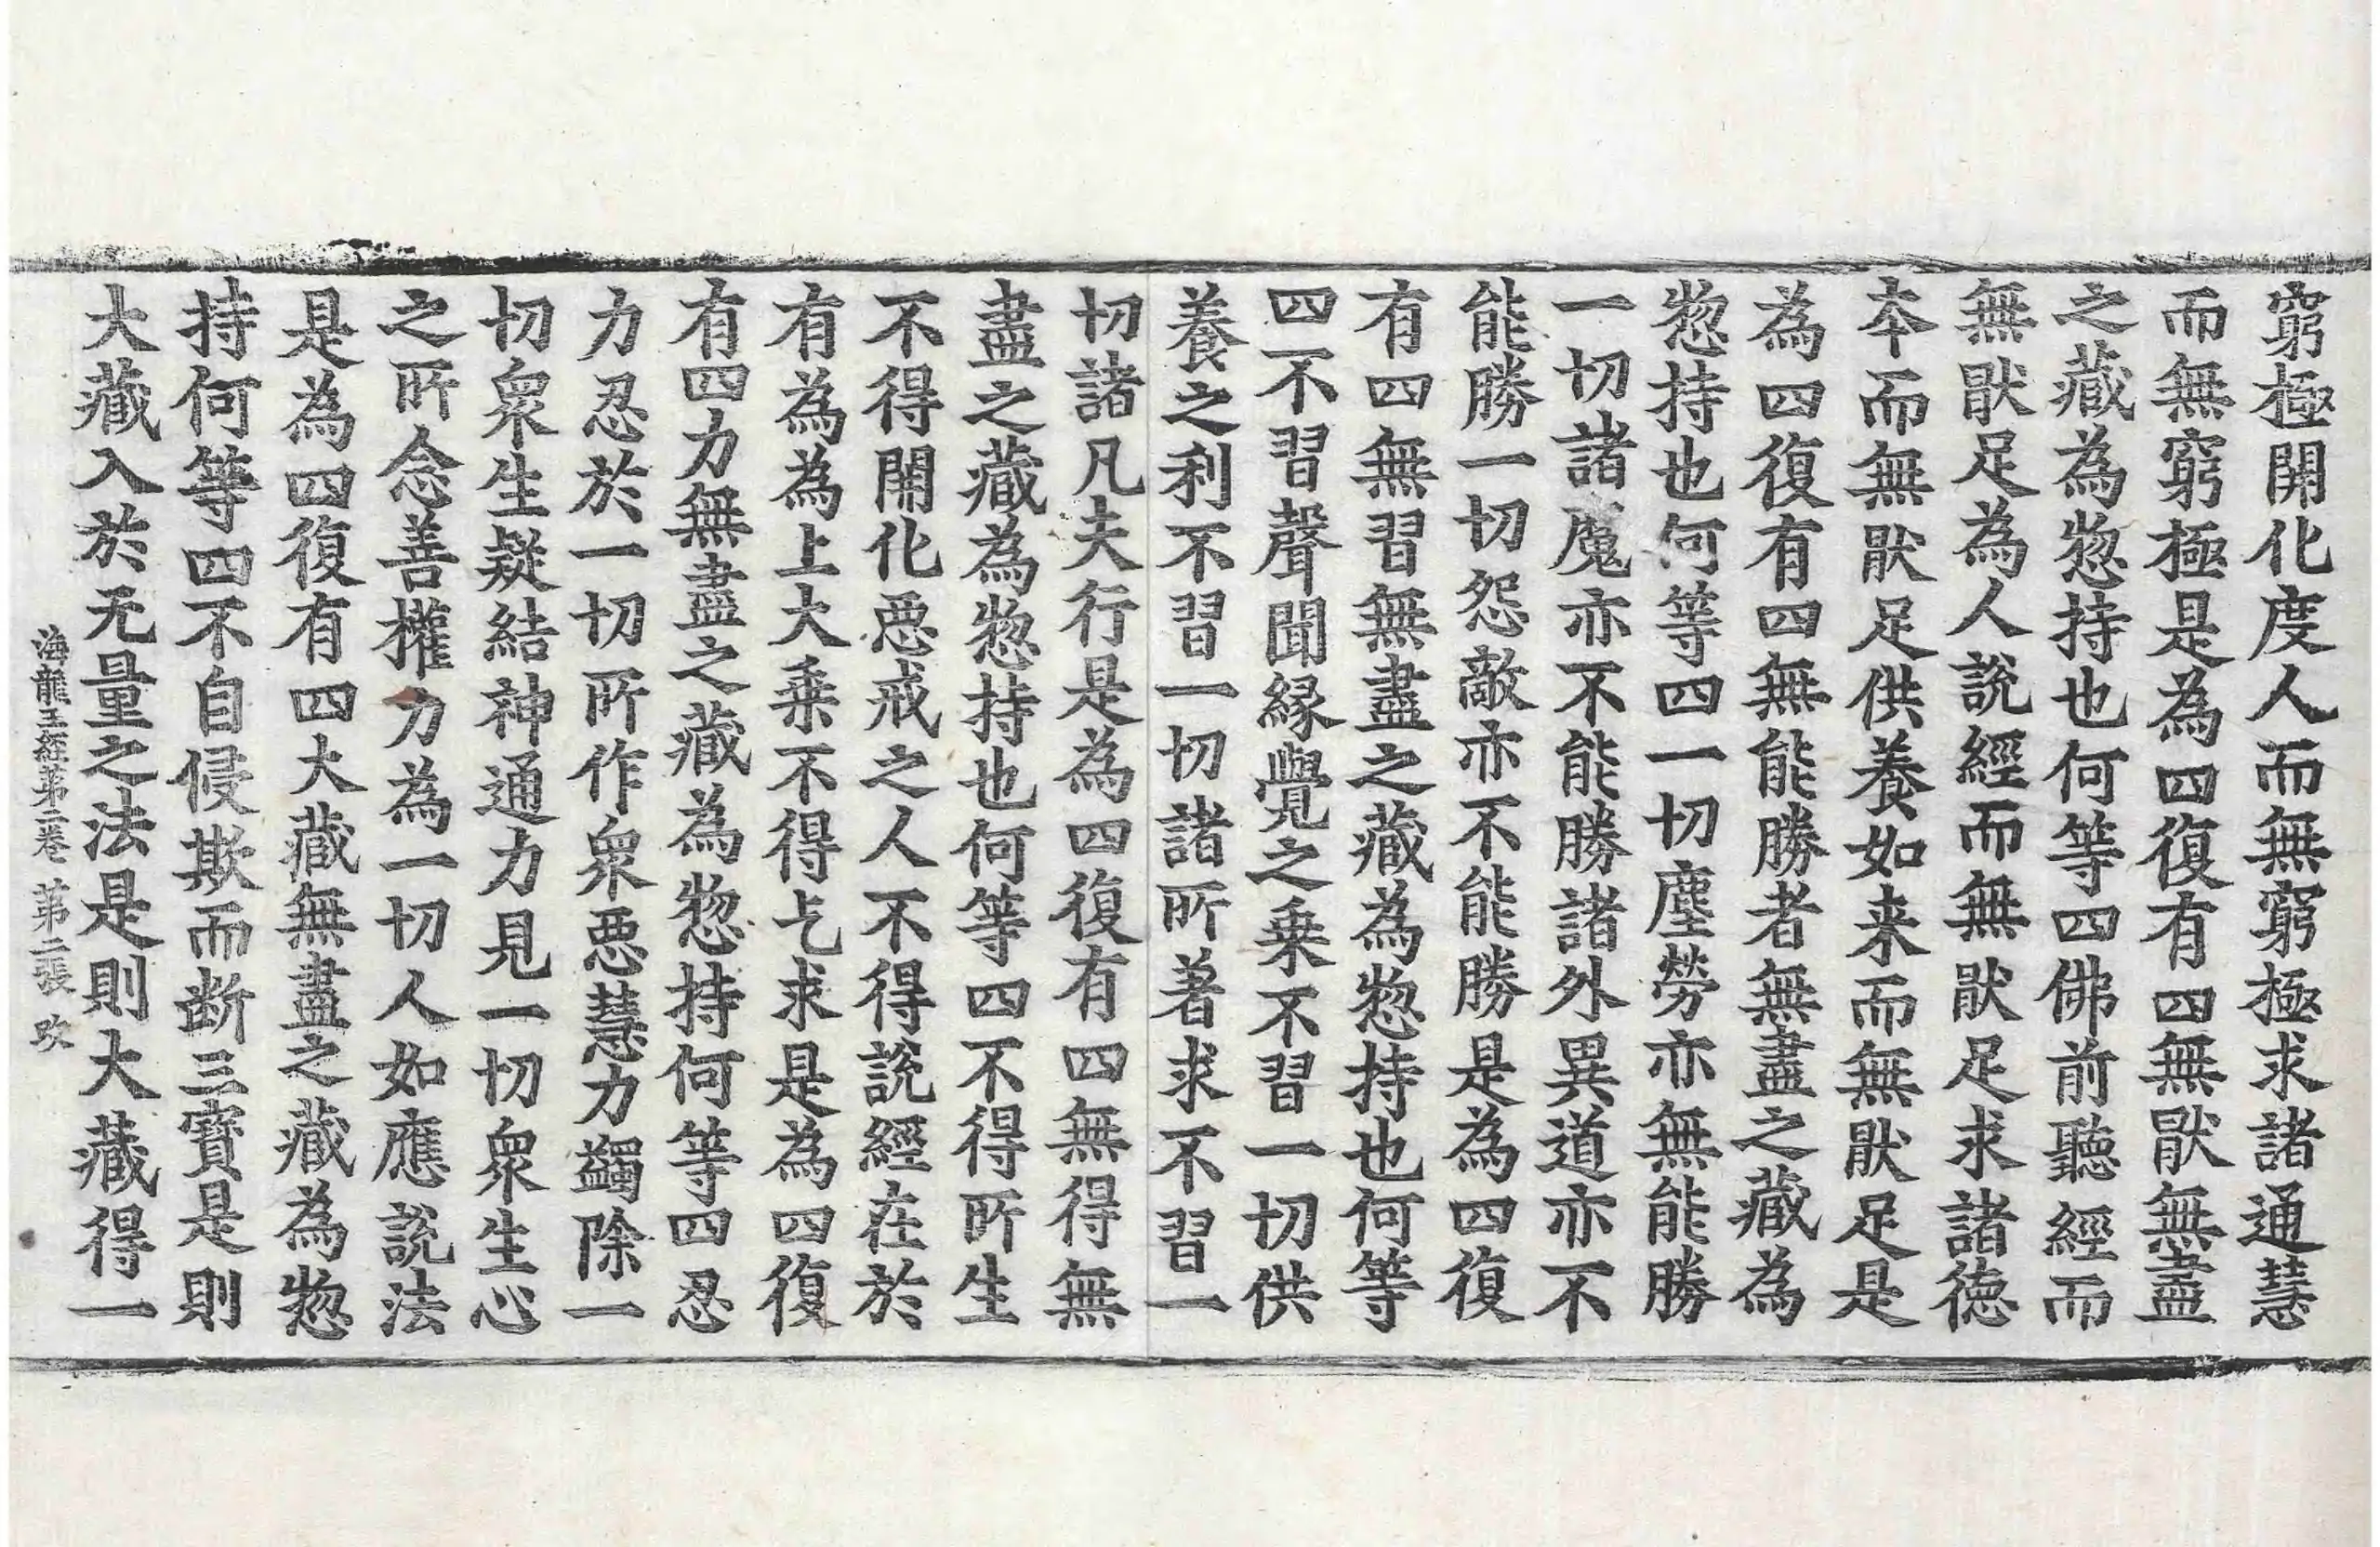 窮極開化度人而無窮極求諸通慧
而無窮極是為四復有四無猒無盡
之藏為惣持也何等四佛前聽經而
無猒足為人說經而無猒足求諸德
本而無猒足供養如来而無猒足是
為四復有四無能勝者無盡之藏為
惣持也何等四一切塵勞亦無能勝
一切諸魔亦不能勝諸外異道亦不
能勝一切怨敵亦不能勝是為四復
有四無習無盡之藏為惣持也何等
四不習聲聞緣覺之乗不習一切供
養之利不習一切諸所著求不習一
切諸凡夫行是為四復有四無得無
盡之藏為惣持也何等四不得所生
不得開化惡戒之人不得說經在於
有為為上大乗不得乞求是為四復
有四力無盡之藏為惣持何等四忍
力忍於一切所作衆惡慧力蠲除一
切衆生疑結神通力見一切衆生心
之所念善權力為一切人如應說法
是為四復有四大藏無盡之藏為惣
持何等四不自侵欺而断三寶是則
大藏入於无量之法是則大藏得一
海龍王經第二卷 第二張 改